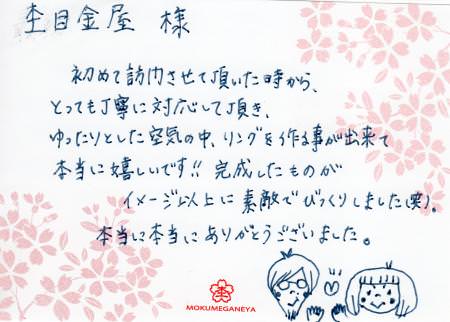 杢目金屋 様
初めて訪問させて頂いた時から、
とっても丁寧に対応して頂き、
ゆったりとした空気の中、リングを作る事が出来て
本当に嬉しいです!! 完成したものが
イメージ以上に素敵でびっくりしました(笑)。
本当に本当にありがとうございました。
MOKUMEGANEYA